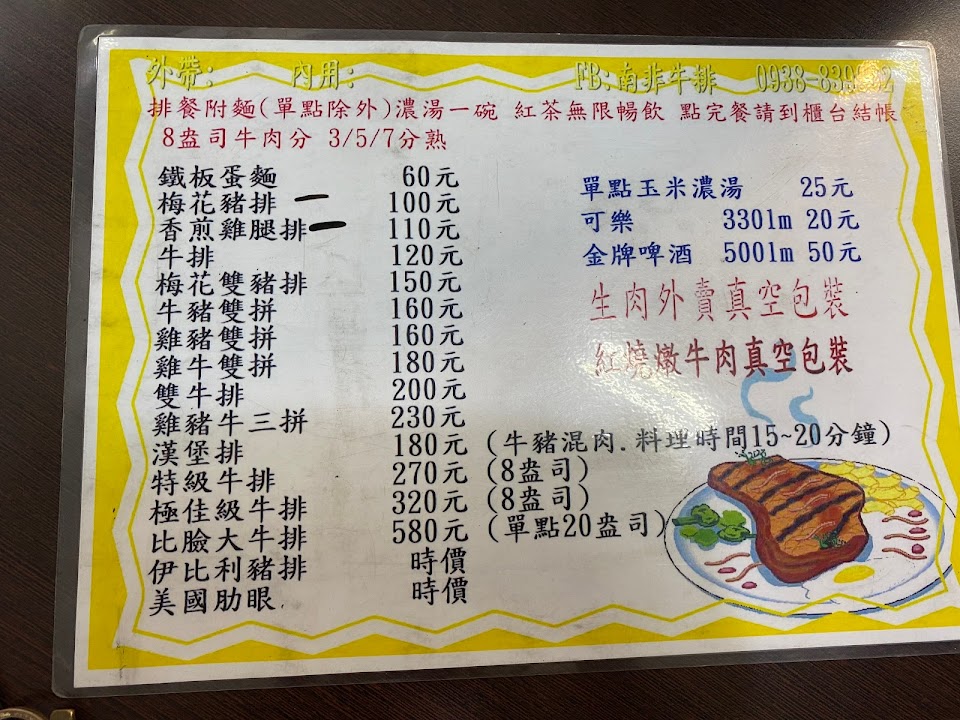 外帶: 內用: FB:南非牛排
排餐附麵(單點除外)濃湯一碗 紅茶無限暢飲 點完餐請到櫃台結帳
8盎司牛肉分 3/5/7分熟
鐵板蛋麵 60元
梅花豬排 100元
香煎雞腿排 110元
牛排 120元
梅花雙豬排 150元
牛豬雙拼 160元
雞豬雙拼 160元
雞牛雙拼 180元
雙牛排 200元
雞豬牛三拼 230元
漢堡排 180元 (牛豬混肉.料理時間15~20分鐘)
特級牛排 270元 (8盎司)
極佳級牛排 320元 (8盎司)
比臉大牛排 580元 (單點20盎司)
伊比利豬排 時價
美國肋眼 時價
單點玉米濃湯 25元
可樂 330lm 20元
金牌啤酒 500lm 50元
生肉外賣真空包裝
紅燒燉牛肉真空包裝